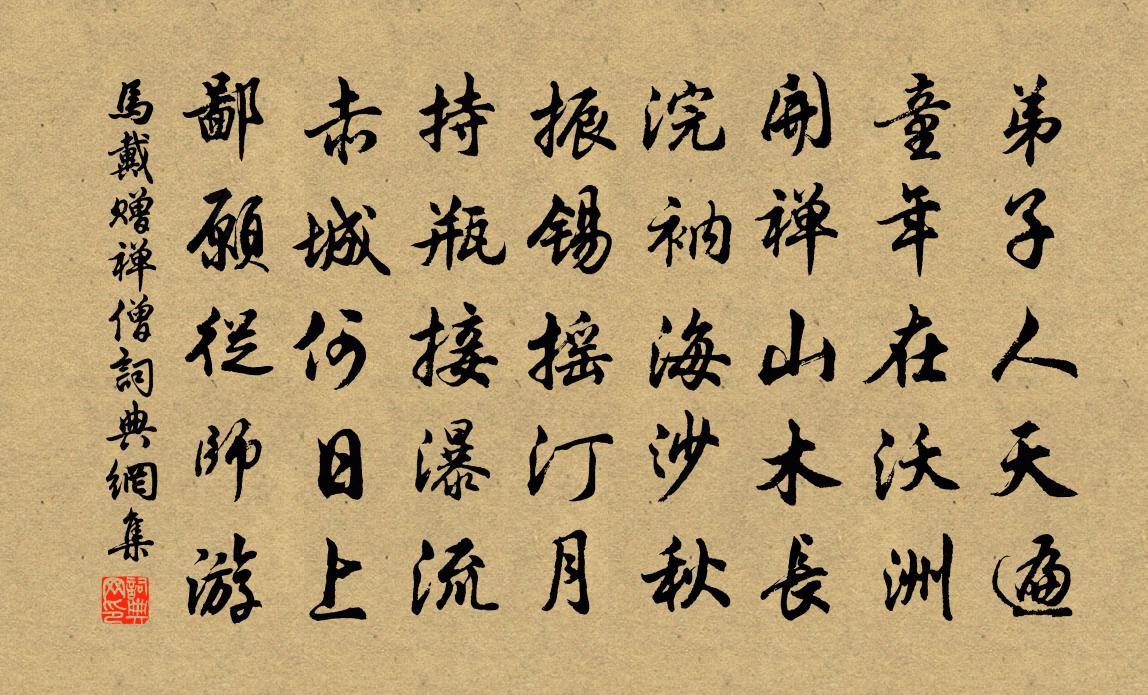 弟子人天遍
童年在沃洲
開禅山木長
浣衲海沙秋
振錫摇汀月
持瓶接瀑流
赤城何日上
鄙願從師游
馬戴赠禅僧詞典網集
詞典网印